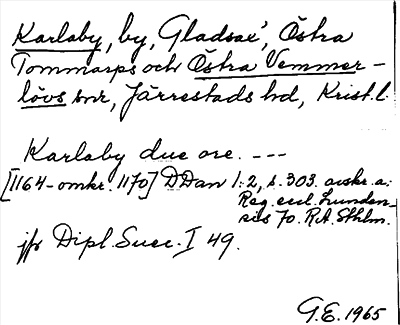 Karlaby, by, Gladsax, Östra
Tommarps och Östra Vemmer-
lövs snr, Järrestads hd, Krist. l.
Karlaby due ore. ---
[1164-omkr. 1170] DDan 1:2, s. 303. avskr. a:
Reg. eccl. Lunden-
sis 70. R.A. Sthlm.
jfr Dipl. Suec. I 49.
G.E. 1965